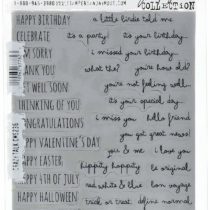 COLLECTION
HAPPY BIRTHDAY
a little birdie told me
CELEBRATE
it's a party!
it's your birthday.
I'M SORRY
i missed your birthday.
THANK YOU
what the?
you're how old?
GET WELL SOON
you're not feeling well.
THINKING OF YOU
it's your special day.
CONGRATULATIONS
i miss you
hello friend
you got great news!
HAPPY VALENTINE'S DAY
you & me
i love you
HAPPY EASTER
hippity hoppity
be original
HAPPY 4TH OF JULY
red white & blue
bon voyage
HAPPY HALLOWEEN
trick or treat
define normal